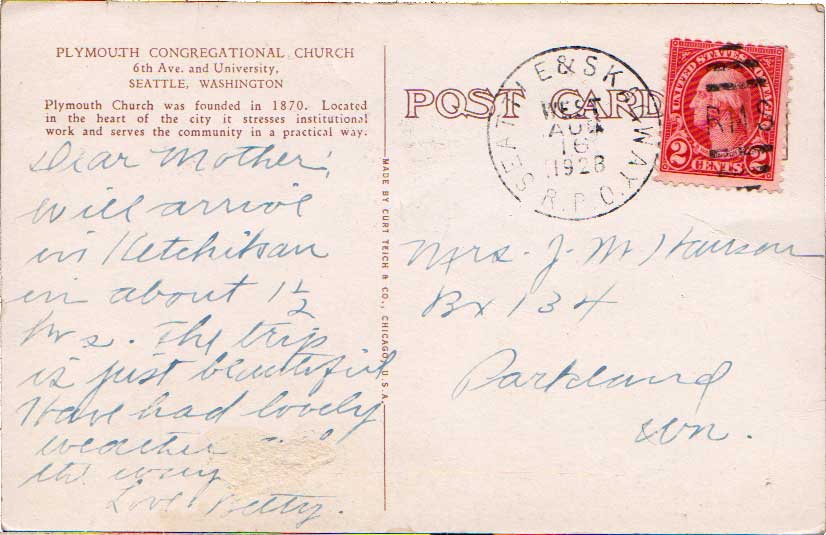 PLYMOUTH CONGREGATIONAL CHURCH
6th Ave. and University,
SEATTLE, WASHINGTON
Plymouth Church was founded in 1870. Located
in the heart of the city it stresses institutional
work and serves the community in a practical way.
Dear Mother,
Will arrive
in Ketchikan
in about 1 1/2
hrs. The trip
is just beautiful
Have had lovely
weather
the way
Love Betty.
MADE BY CURT TEICH & CO., CHICAGO, U.S.A.
POST CARD
SEATTLE & SKAGWAY
WEST
AUG
16
1928
R.P.O.
UNITED STATES POSTAGE
2 CENTS 2
Mrs. J. M.
Bx 134
Parkland
Wn.